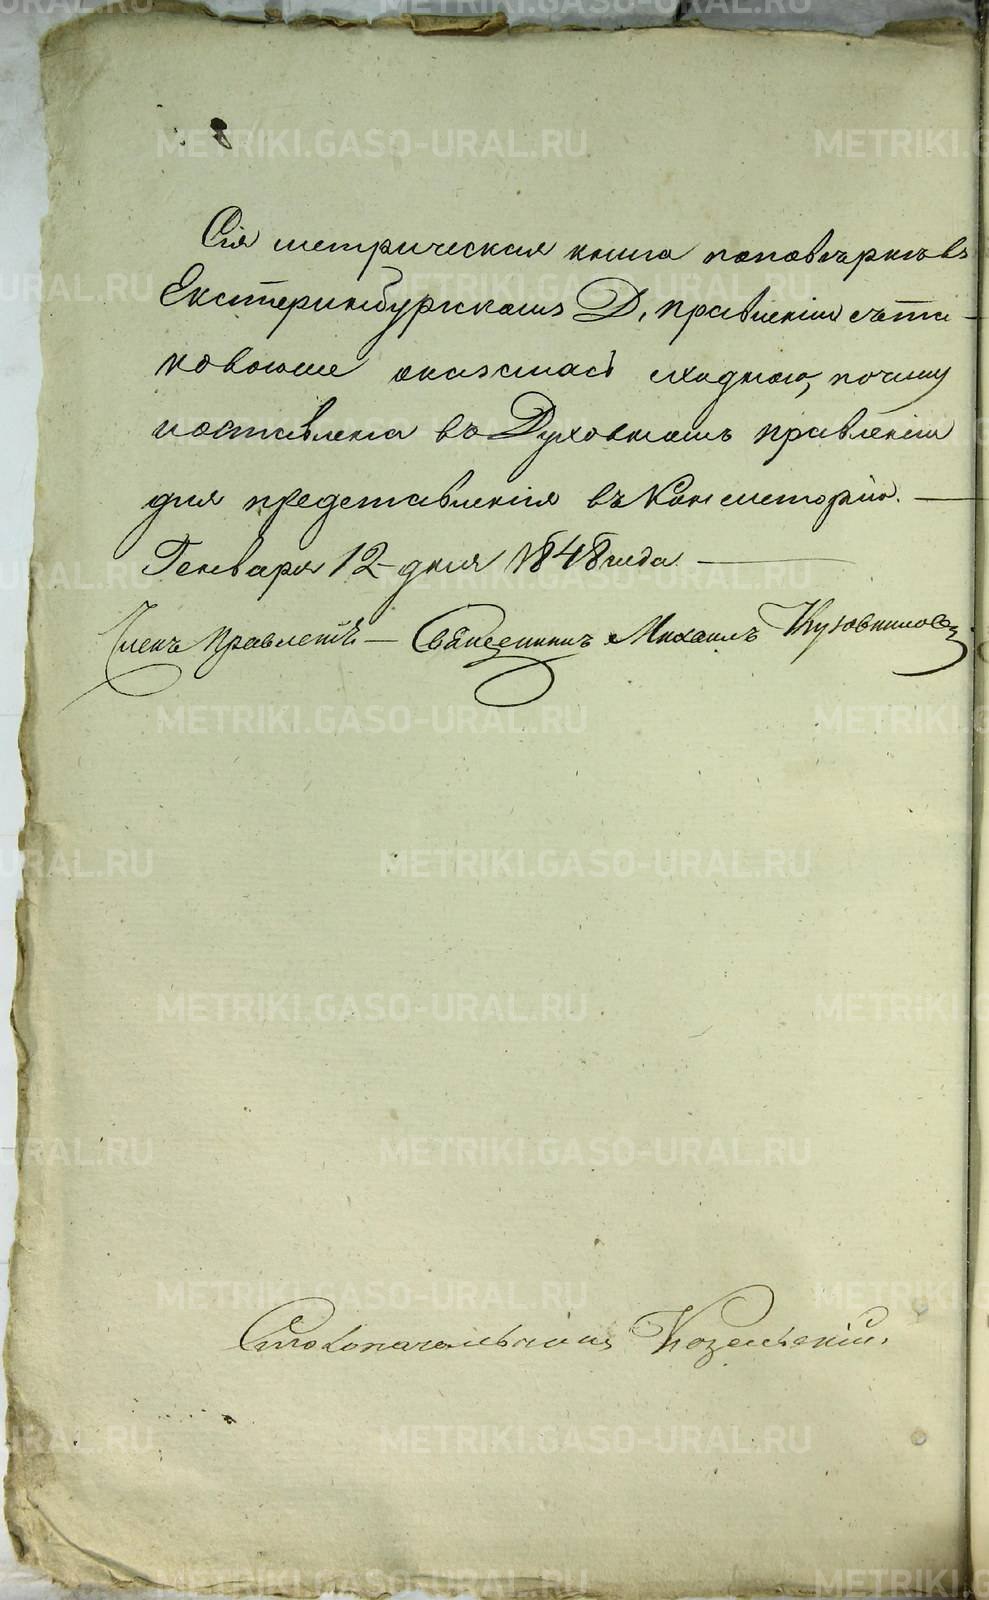 Сія метрическая книга поповѣркѣ въ
Екатеринбургскомъ Д. правленіи съ та-
ковоюже оказалась сходною, почему
иоставлена въ Духовномъ правленіи
для представленія въ Консисторію.
Генваря 12 дня 1848 года
Членъ правленія Священникъ Михаилъ Кузовниковъ
Столоначальникъ Козельскій.
METRIKI.GASO-URAL.RU